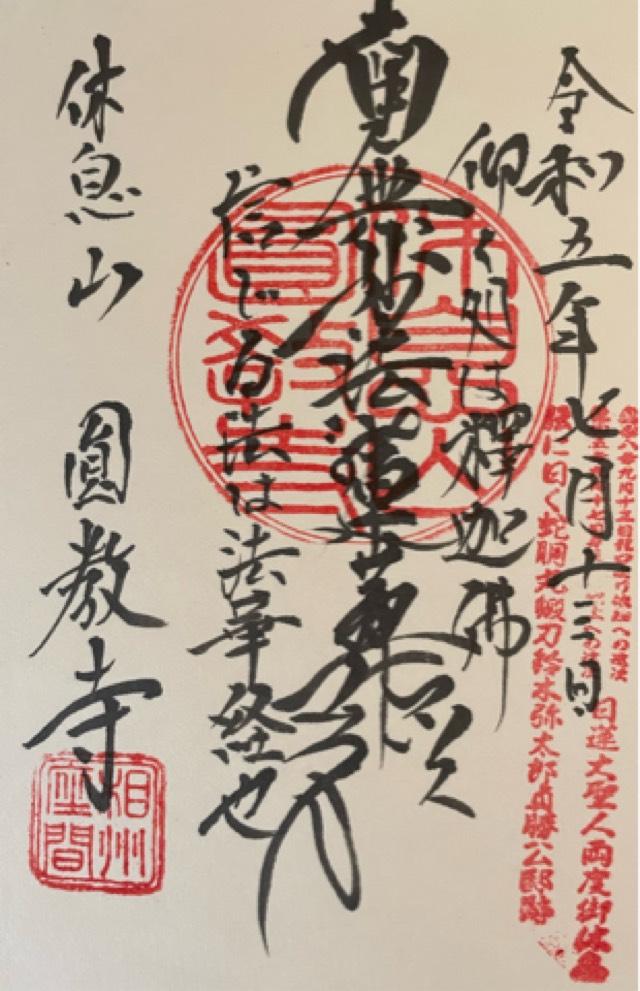 令和五年七月十三日
日蓮大聖人両度御休息
伝に曰く蛇胴丸蝦刀鈴木弥太郎貞勝公邸跡
仰ぐ処は釋迦佛
南無妙法蓮華経
信じる法は法華経也
休息山 圓教寺
相州座間